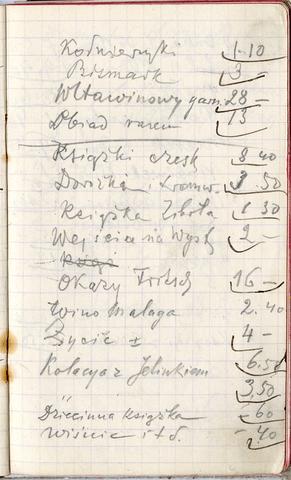 Kołnierzyki 1·10
Bismark 3
Wltawinowy garn. 28 —
Obiad razem 13
Książki czesk 8 40
Dorożka i tramw. 3.50
Książka Zobota 1 30
Wejście na Wyst 2 —
Okazy Fritsch 16 —
Wino Malaga 2.40
Życie 4 —
Kolacya z Jelinkiem 6.50
3,50
Dziecinna Książka — 60
Wiśnie i t d. — 40